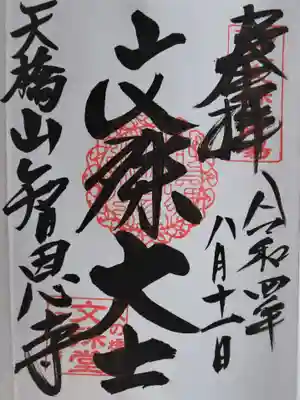 奉拝
令和四年
八月十一日
文殊大士
天橋山智恩寺
文殊堂